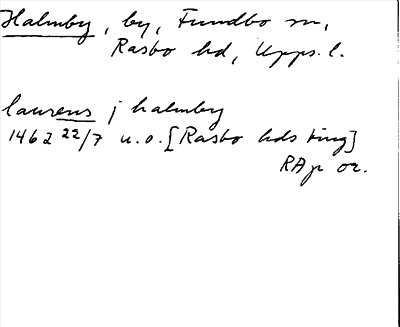 Halmby, by, Funbo sn,
Rasbo hd, Upps. l.
laurens j halmby
1462 22/7 u.o. [Rasbo hds ting]
RAp or.